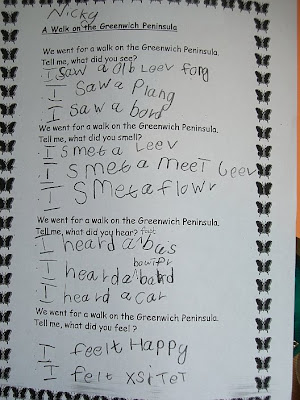 Nicky
A Walk on the Greenwich Peninsula
We went for a walk on the Greenwich Peninsula.
Tell me, what did you see?
I Saw a Leev
I Saw a Plang
I Saw a bord
We went for a walk on the Greenwich Peninsula.
Tell me, what did you smell?
I smet a Leev
I smet a meeT Leev
I Smet a flowr
We went for a walk on the Greenwich Peninsula.
Tell me, what did you hear?
I heard a bas
I heard a bord
I heard a car
We went for a walk on the Greenwich Peninsula.
Tell me, what did you feel ?
I feelt Happy
I felt XSiTeT